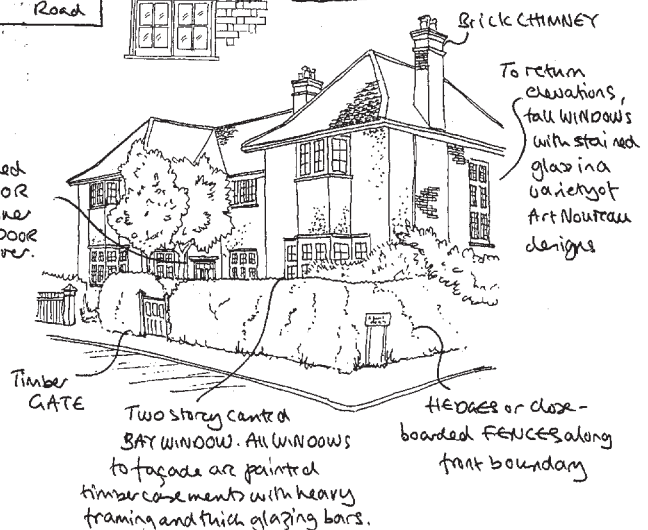 Road
Brick CHIMNEY
To return
elevations,
tall WINDOWS
with stained
glass in a
variety of
Art Nouveau
designs
OR
DOOR
Timber
GATE
Two storey canted
BAY WINDOW. All WINDOWS
to façade are painted
timber casements with heavy
framing and thick glazing bars.
HEDGES or close-
boarded FENCES along
front boundary